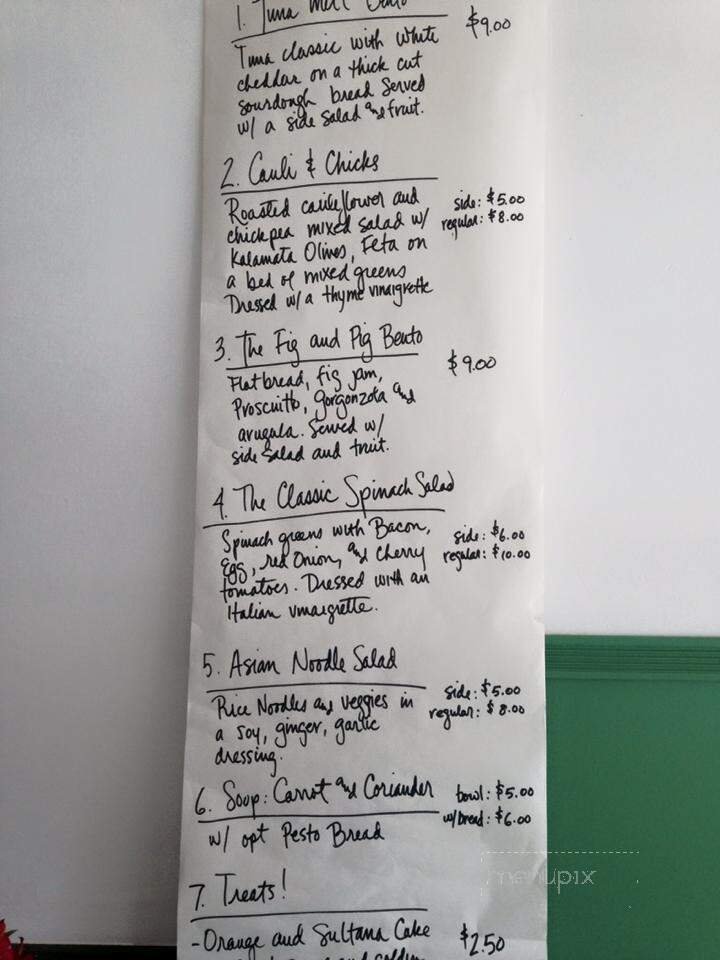 1. Tuna Melt Bento
$9.00
Tuna classic with white
cheddar on a thick cut
sourdough bread Served
w/ a side salad and fruit.
2. Cauli & Chicks
Roasted cauliflower and
side: $5.00
chickpea mixed salad w/
regular: $8.00
Kalamata Olives, Feta on
a bed of mixed greens
Dressed w/ a thyme vinaigrette
3. The Fig and Pig Bento
$9.00
Flatbread, fig jam,
Proscuitto, gorgonzola and
arugala. Served w/
side salad and fruit.
4. The Classic Spinach Salad
Spinach greens with Bacon,
side: $6.00
Egg, red Onion, and Cherry
regular: $10.00
tomatoes. Dressed with an
Italian vinaigrette.
5. Asian Noodle Salad
side: $5.00
Rice Noodles and veggies in
regular: $8.00
a soy, ginger, garlic
dressing.
6. Soup: Carrot and Coriander
bowl: $5.00
w/bread: $6.00
w/ opt Pesto Bread
menupix
7. Treats!
-Orange and Sultana Cake
$2.50